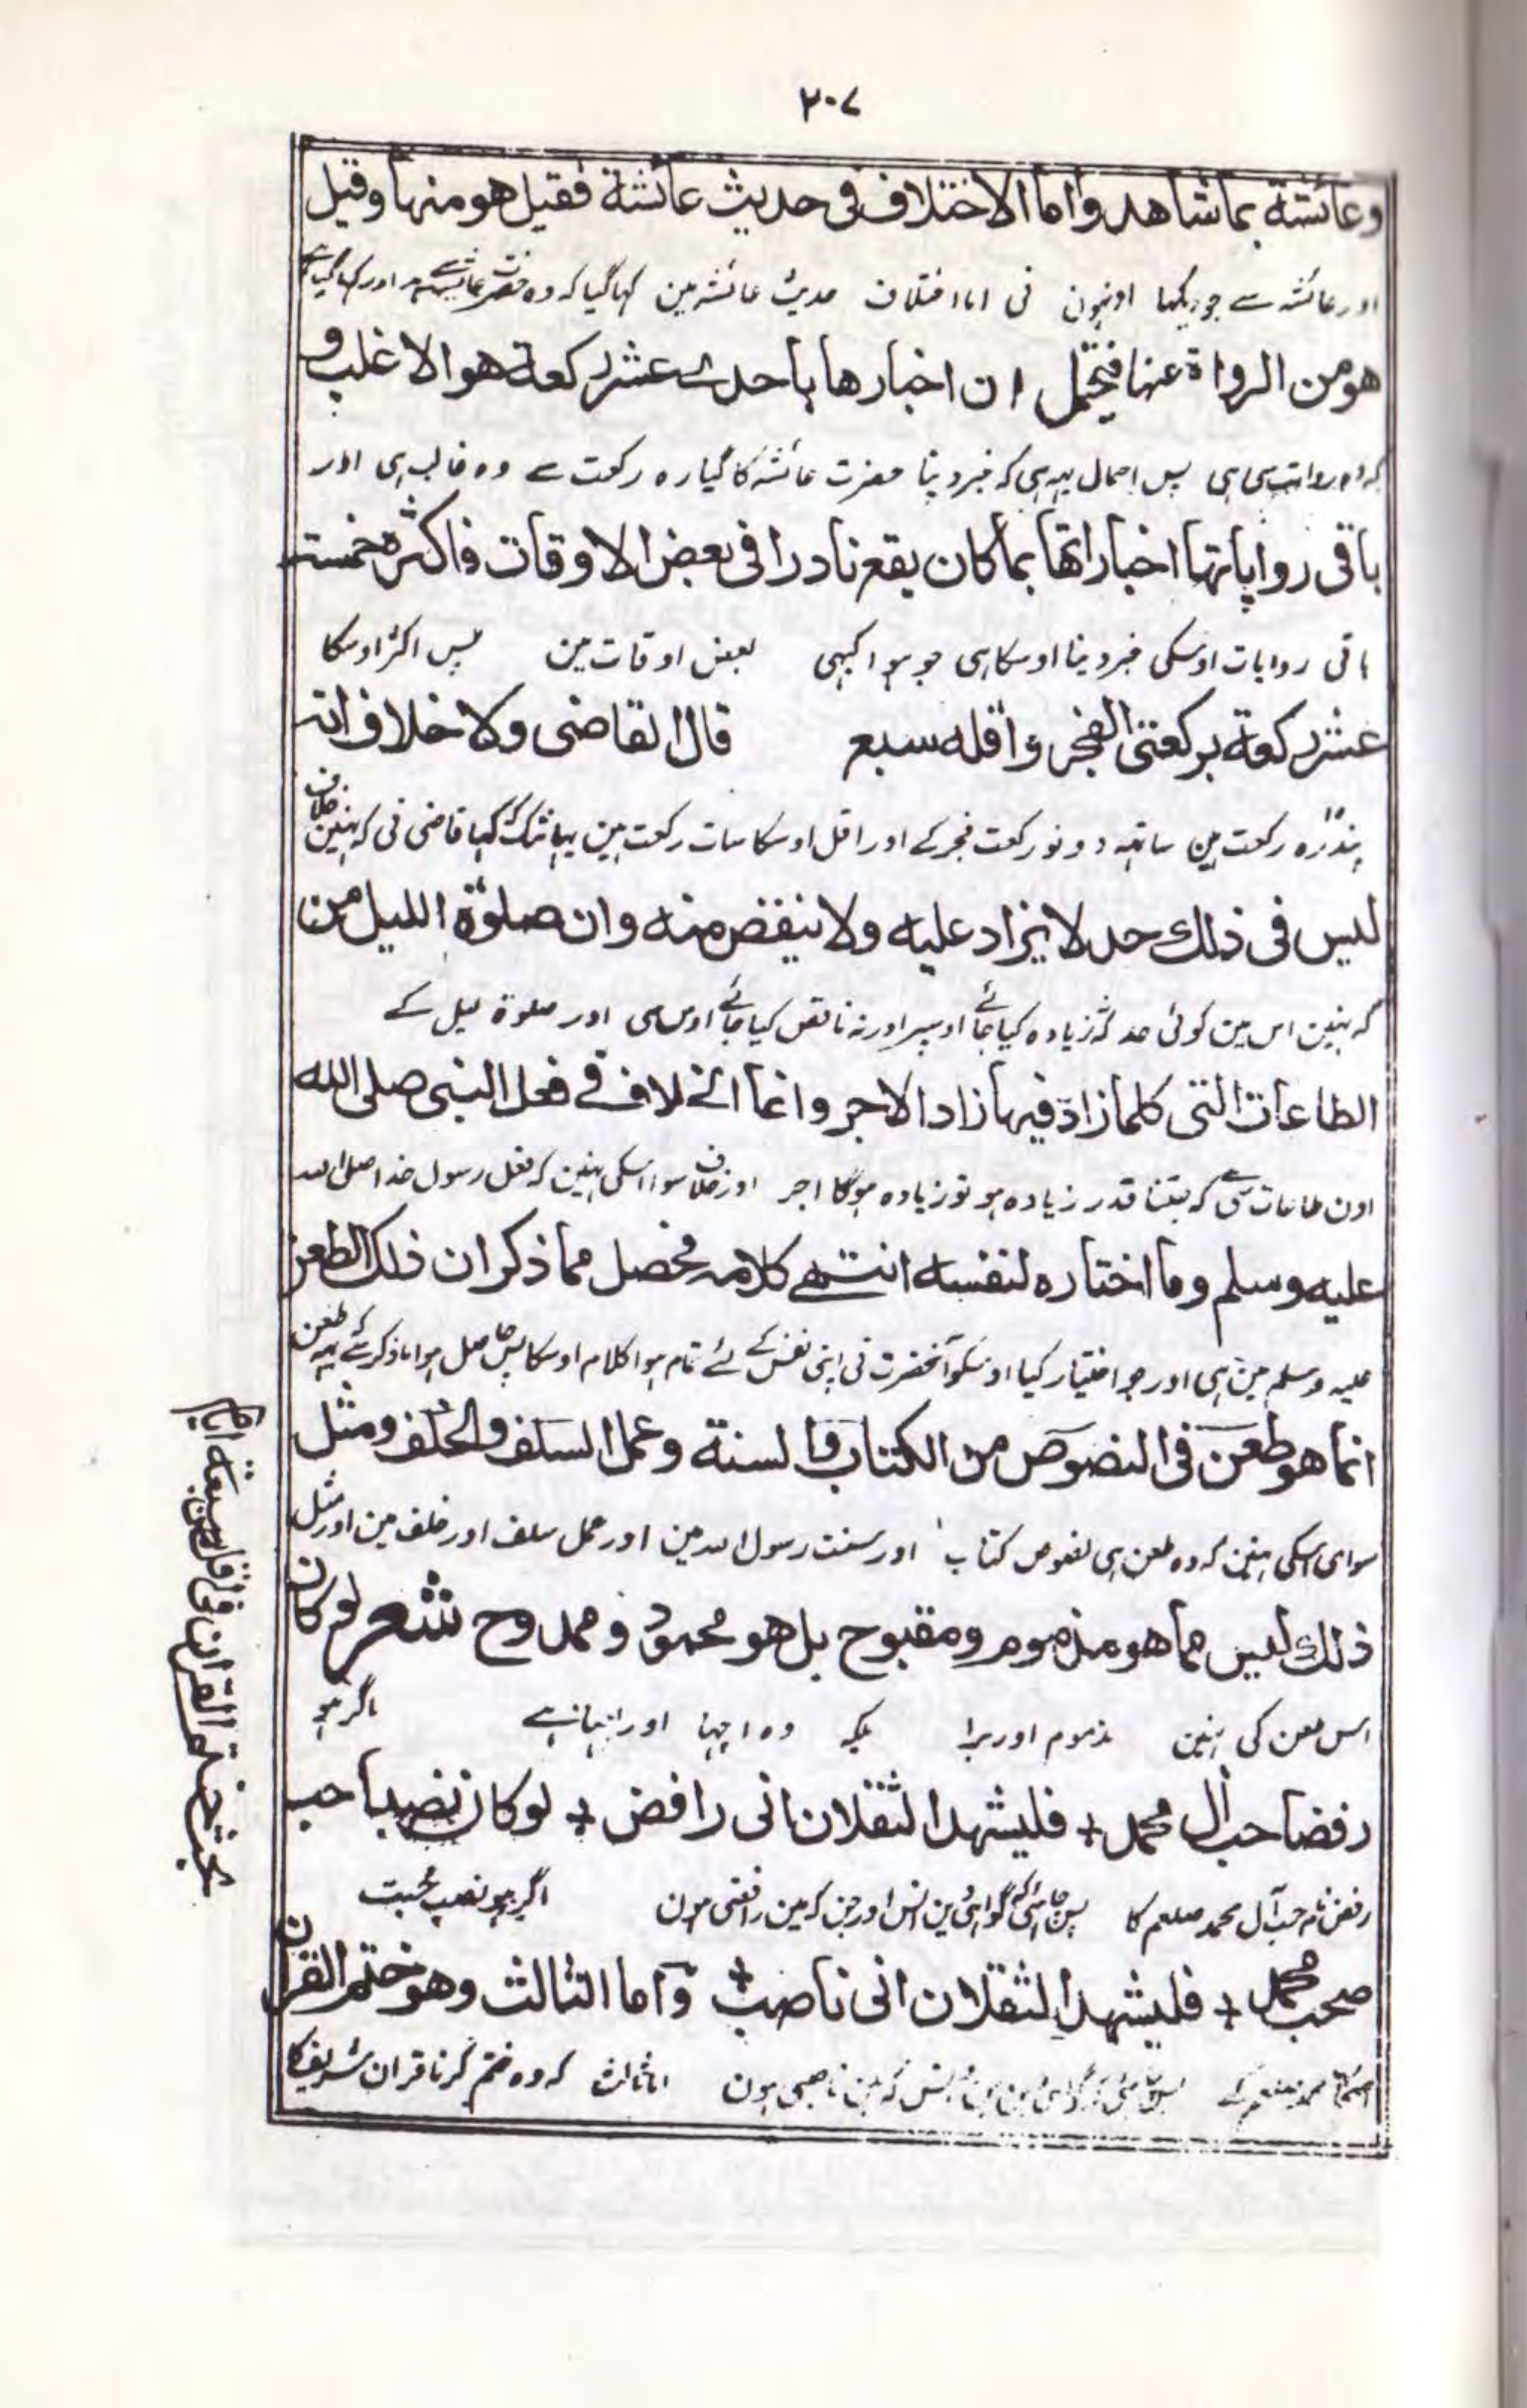 ۲۰۷
وعائشة بما شاهد واما الاختلاف فی حدیث عائشة فقیل هو منها وقیل
اور عائشہ سے جو دیکہا اونہون نی اما اختلاف حدیث عائشہ مین کہا گیا کہ وہ حضرت عائشہ سے ہے اور کہا گیا ہے
هو من الرواة عنها فیحتمل ان اخبارها باحدے عشر رکعة هو الاغلب و
کہ وہ روات سی ہی پس احتمال یہہ ہی کہ خبر دینا حضرت عائشہ کا گیارہ رکعت سے وہ غالب ہی اور
باقی روایاتها اخباراتها بما کان یقع نادرا فی بعض الاوقات فاکثره خمسة
باقی روایات اوسکی خبر دینا اوسکا ہی جو ہوا کبہی بعض اوقات مین پس اکثر اوسکا
عشر رکعة برکعتی الفجر واقله سبع قال القاضی ولا خلاف انه
پندرہ رکعت ہین ساتہہ دونو رکعت فجر کے اور اقل اوسکا سات رکعت ہین کہا قاضی نی کہ نہین خلاف
لیس فی ذلك حد لا یزاد علیه ولا ینقض منه وان صلوة اللیل من
کہ نہین اس مین کوئی حد کہ زیادہ کیا جائے اوسپر اور نہ ناقص کیا جائے اوس سی اور صلوة لیل کے
الطاعات التی کلما زاد فیها زاد الاجر وانما الخلاف فے فعل النبی صلی الله
اون طاعات سی ہے کہ جتنا قدر زیادہ ہو تو زیادہ ہوگا اجر اور خلاف سوا اسکی نہین کہ فعل رسول خدا صلی الله
علیه وسلم وما اختاره لنفسه انتهے کلامه فحصل مما ذکر ان ذلك الطعن
علیہ وسلم مین ہی اور جو اختیار کیا اوسکو آنحضرت نی اپنی نفس کے لئے تمام ہوا کلام اوسکا پس حاصل ہوا ذکر سے یہہ طعن
انما هو طعن فی النصوص من الکتاب والسنة وعمل السلف والخلف ومثل
سوای اسکی نہین کہ وہ طعن ہی نصوص کتاب اور سنت رسول الله مین اور عمل سلف اور خلف مین اور مثل
ذلك لیس مما هو مذموم ومقبوح بل هو محمود وممدوح شعر لو کان
اس طعن کی نہین مذموم اور برا بلکہ وہ اچہا اور ہے اگر ہو
رفضا حب ال محمد + فلیشهد الثقلان انی رافض + لو کان نصبا حب
رفض نام حب آل محمد صلعم کا پس چاہئی کہ گواہی دین انس اور جن کہ مین رافضی ہون اگر ہو نصب محبت
صحب محمد + فلیشهد الثقلان انی ناصب + واما الثالث وهو ختم القران
محمد صلعم کے کہ مین ناصبی ہون اما ثالث کہ وہ ختم کرنا قران شریف کا
بحث ختم القران فی اقل من سبعة ایام